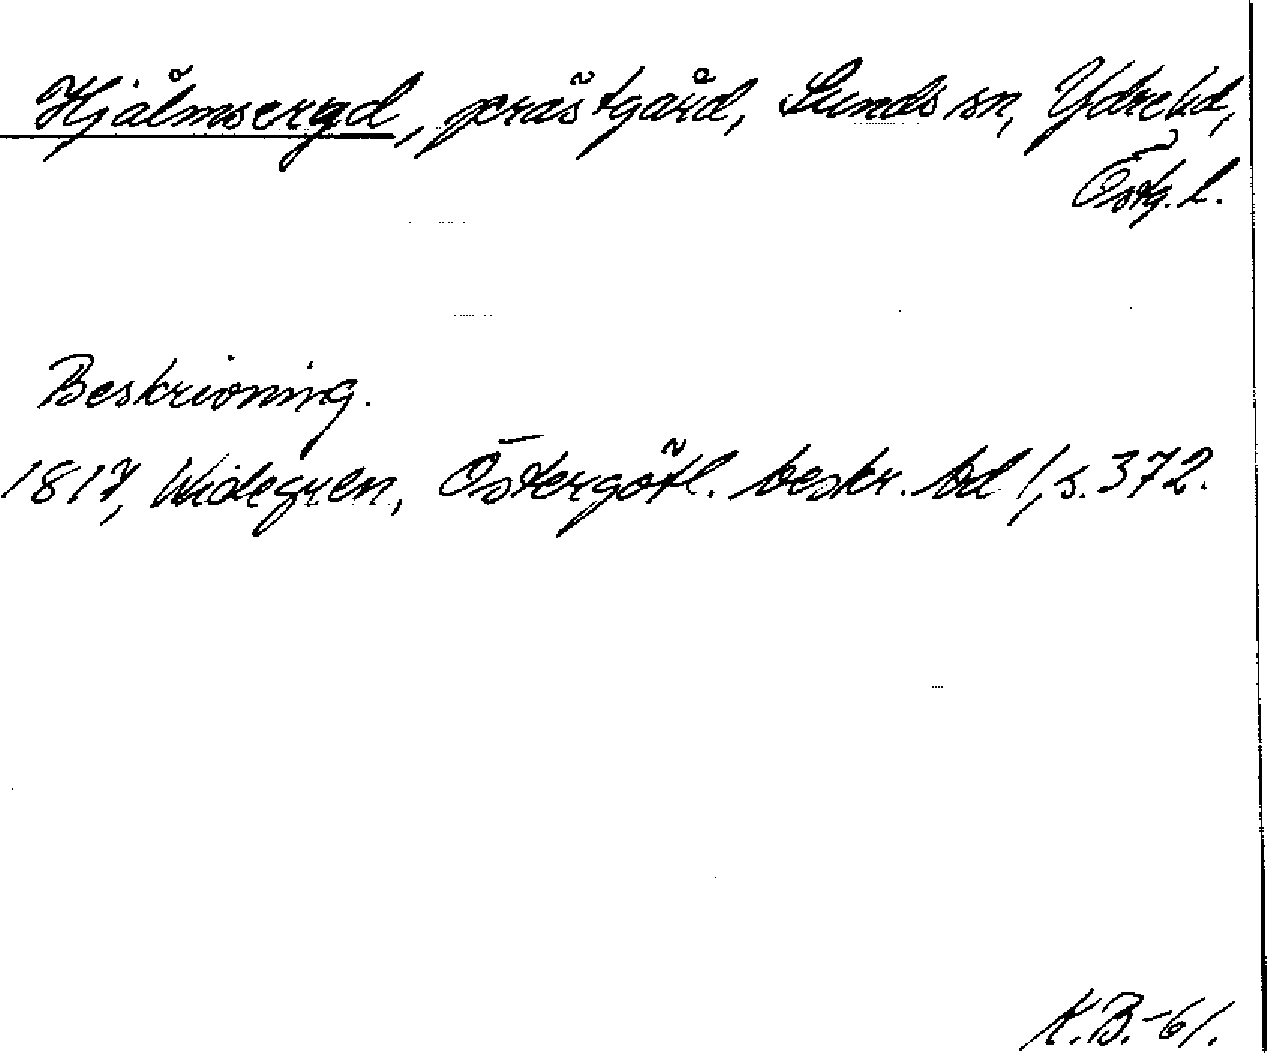 Hjälmseryd, prästgård, Sunds sn, Ydre hd,
Östg. l.
Beskrivning.
1817, Widegren, Östergötl. beskr. bd 1, s. 372.
K.B.-61.